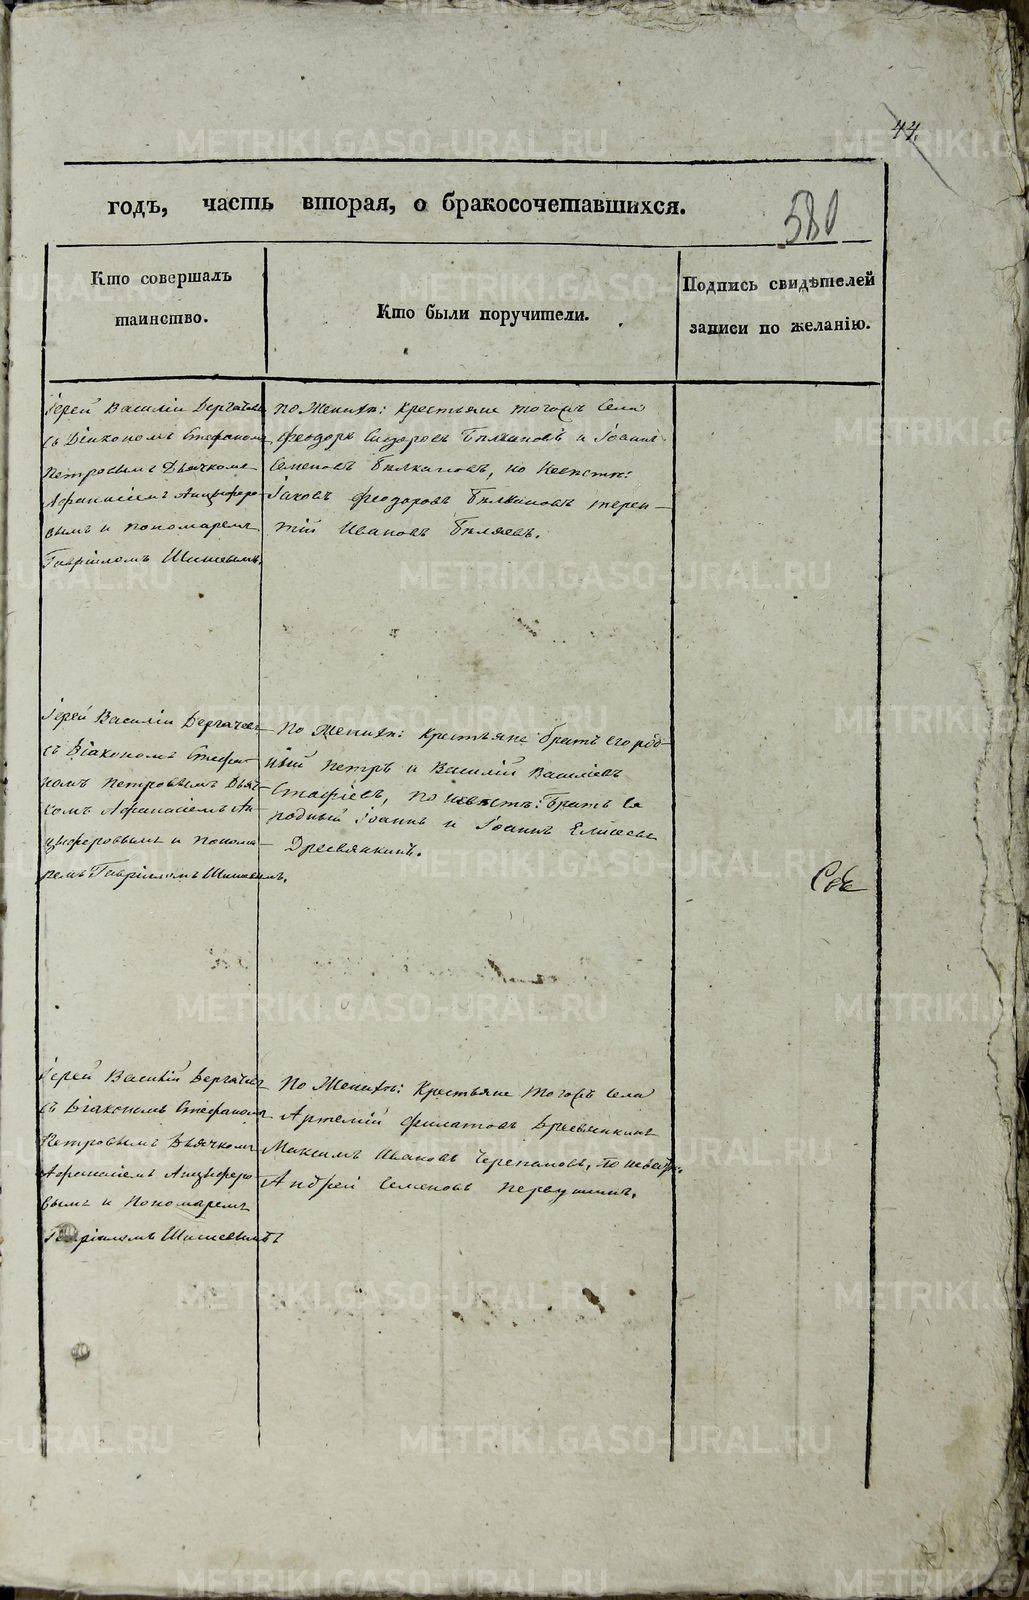 44.
годъ, часть вторая, о бракосочетавшихся.
580
Кто совершалъ
таинство.
Кто были поручители.
Подпись свидѣтелей
записи по желанію.
Іерей Василіи Дергачевъ
съ Діакономъ Стефаномъ
Петровымъ Дьячкомъ
Афанасіемъ Анцыферо
вымъ и пономаремъ
Гавріиломъ Шишевымъ.
по Женихѣ: Крестьяне тогожъ Села
Феодоръ Сидоровъ Бѣлкановъ и Іоаннъ
Семеновъ Бѣлкановъ, по невѣстѣ:
Іаковъ Феодоровъ Бѣлкановъ терен-
тій Ивановъ Бѣляевъ.
Іерей Василіи Дергачевъ
съ Діакономъ Стефа-
номъ Петровымъ Дьяч-
комъ Афанасіемъ Ан-
цыферовымъ и понома-
ремъ Гавріиломъ Шишевымъ.
По Женихѣ: Крестьяне братъ его род-
ный Петръ и Василій Василіевъ
по невѣстѣ: братъ Ея
родный Іоаннъ и Іоаннъ Елисеевъ
Дресвянкинъ.
Сей
Іерей Василій Дергачевъ
съ Діакономъ Стефаномъ
Петровымъ Дьячкомъ
Афанасіемъ Анцыферо
вымъ и Пономаремъ
Гавріиломъ Шишевымъ
По Женихѣ: Крестьяне тогожъ Села
Артемій Филатовъ Дресвянкинъ
Максимъ Ивановъ Черепановъ, по невѣстѣ:
Андрей Семеновъ Первушинъ.
METRIKI.GASO-URAL.RU